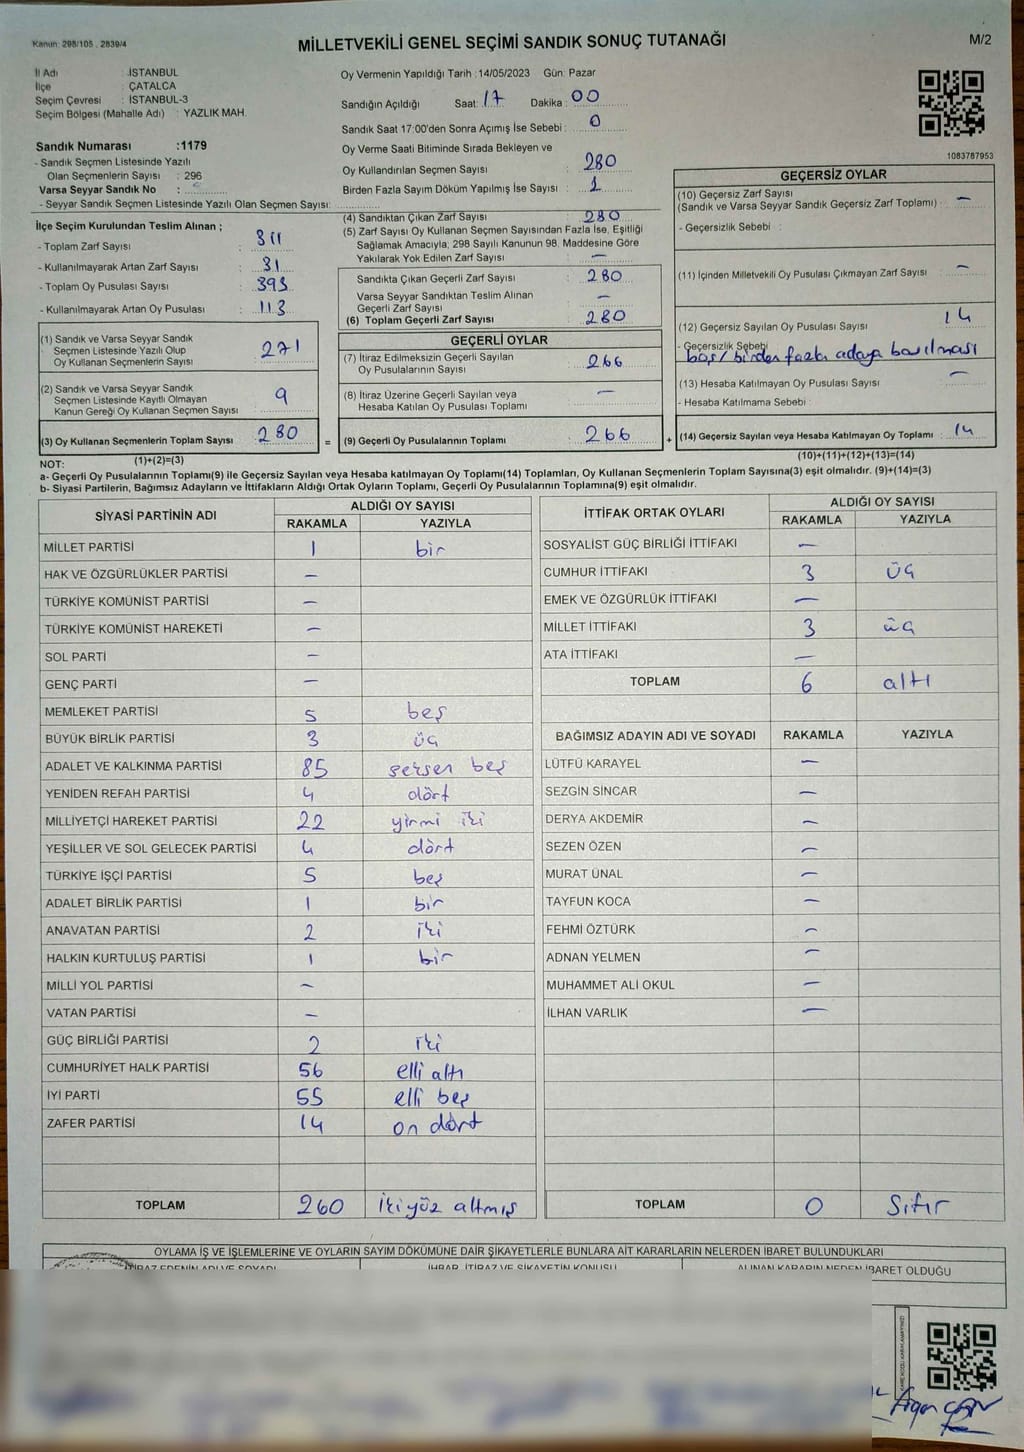 Kanun: 298/105 . 2839/4
MİLLETVEKİLİ GENEL SEÇİMİ SANDIK SONUÇ TUTANAĞI
M/2
İl Adı : İSTANBUL
İlçe : ÇATALCA
Seçim Çevresi : İSTANBUL-3
Seçim Bölgesi (Mahalle Adı) : YAZLIK MAH.
Oy Vermenin Yapıldığı Tarih :14/05/2023 Gün: Pazar
Sandığın Açıldığı Saat: 17 Dakika : 00
Sandık Saat 17:00'den Sonra Açımış İse Sebebi : 0
Oy Verme Saati Bitiminde Sırada Bekleyen ve
Oy Kullandırılan Seçmen Sayısı : 280
Birden Fazla Sayım Döküm Yapılmış İse Sayısı : 1
1083787953
Sandık Numarası :1179
- Sandık Seçmen Listesinde Yazılı
Olan Seçmenlerin Sayısı : 296
Varsa Seyyar Sandık No :
- Seyyar Sandık Seçmen Listesinde Yazılı Olan Seçmen Sayısı:
İlçe Seçim Kurulundan Teslim Alınan ;
- Toplam Zarf Sayısı : 311
- Kullanılmayarak Artan Zarf Sayısı : 31
- Toplam Oy Pusulası Sayısı : 393
- Kullanılmayarak Artan Oy Pusulası : 113
(1) Sandık ve Varsa Seyyar Sandık
Seçmen Listesinde Yazılı Olup
Oy Kullanan Seçmenlerin Sayısı : 271
(2) Sandık ve Varsa Seyyar Sandık
Seçmen Listesinde Kayıtlı Olmayan
Kanun Gereği Oy Kullanan Seçmen Sayısı : 9
(3) Oy Kullanan Seçmenlerin Toplam Sayısı : 280
(1)+(2)=(3)
(4) Sandıktan Çıkan Zarf Sayısı : 280
(5) Zarf Sayısı Oy Kullanan Seçmen Sayısından Fazla İse, Eşitliği
Sağlamak Amacıyla, 298 Sayılı Kanunun 98. Maddesine Göre
Yakılarak Yok Edilen Zarf Sayısı : —
Sandıkta Çıkan Geçerli Zarf Sayısı : 280
Varsa Seyyar Sandıktan Teslim Alınan
Geçerli Zarf Sayısı : —
(6) Toplam Geçerli Zarf Sayısı : 280
GEÇERLİ OYLAR
(7) İtiraz Edilmeksizin Geçerli Sayılan
Oy Pusulalarının Sayısı : 266
(8) İtiraz Üzerine Geçerli Sayılan veya
Hesaba Katılan Oy Pusulası Toplamı : —
= (9) Geçerli Oy Pusulalarının Toplamı : 266
GEÇERSİZ OYLAR
(10) Geçersiz Zarf Sayısı
(Sandık ve Varsa Seyyar Sandık Geçersiz Zarf Toplamı) : —
- Geçersizlik Sebebi :
(11) İçinden Milletvekili Oy Pusulası Çıkmayan Zarf Sayısı : —
(12) Geçersiz Sayılan Oy Pusulası Sayısı : 14
- Geçersizlik Sebebi
boş / birden fazla adaya basılması
(13) Hesaba Katılmayan Oy Pusulası Sayısı : —
- Hesaba Katılmama Sebebi :
+ (14) Geçersiz Sayılan veya Hesaba Katılmayan Oy Toplamı : 14
(10)+(11)+(12)+(13)=(14)
NOT:
a- Geçerli Oy Pusulalarının Toplamı(9) ile Geçersiz Sayılan veya Hesaba katılmayan Oy Toplamı(14) Toplamları, Oy Kullanan Seçmenlerin Toplam Sayısına(3) eşit olmalıdır. (9)+(14)=(3)
b- Siyasi Partilerin, Bağımsız Adayların ve İttifakların Aldığı Ortak Oyların Toplamı, Geçerli Oy Pusulalarının Toplamına(9) eşit olmalıdır.
SİYASİ PARTİNİN ADI ALDIĞI OY SAYISI
RAKAMLA YAZIYLA
MİLLET PARTİSİ 1 bir
HAK VE ÖZGÜRLÜKLER PARTİSİ —
TÜRKİYE KOMÜNİST PARTİSİ —
TÜRKİYE KOMÜNİST HAREKETİ —
SOL PARTİ —
GENÇ PARTİ —
MEMLEKET PARTİSİ 5 beş
BÜYÜK BİRLİK PARTİSİ 3 üç
ADALET VE KALKINMA PARTİSİ 85 seksen beş
YENİDEN REFAH PARTİSİ 4 dört
MİLLİYETÇİ HAREKET PARTİSİ 22 yirmi iki
YEŞİLLER VE SOL GELECEK PARTİSİ 4 dört
TÜRKİYE İŞÇİ PARTİSİ 5 beş
ADALET BİRLİK PARTİSİ 1 bir
ANAVATAN PARTİSİ 2 iki
HALKIN KURTULUŞ PARTİSİ 1 bir
MİLLİ YOL PARTİSİ —
VATAN PARTİSİ —
GÜÇ BİRLİĞİ PARTİSİ 2 iki
CUMHURİYET HALK PARTİSİ 56 elli altı
İYİ PARTİ 55 elli beş
ZAFER PARTİSİ 14 on dört
TOPLAM 260 İkiyüz altmış
İTTİFAK ORTAK OYLARI ALDIĞI OY SAYISI
RAKAMLA YAZIYLA
SOSYALİST GÜÇ BİRLİĞİ İTTİFAKI —
CUMHUR İTTİFAKI 3 üç
EMEK VE ÖZGÜRLÜK İTTİFAKI —
MİLLET İTTİFAKI 3 üç
ATA İTTİFAKI —
TOPLAM 6 altı
BAĞIMSIZ ADAYIN ADI VE SOYADI RAKAMLA YAZIYLA
LÜTFÜ KARAYEL —
SEZGİN SİNCAR —
DERYA AKDEMİR —
SEZEN ÖZEN —
MURAT ÜNAL —
TAYFUN KOCA —
FEHMİ ÖZTÜRK —
ADNAN YELMEN —
MUHAMMET ALİ OKUL —
İLHAN VARLIK —
TOPLAM 0 Sıfır
OYLAMA İŞ VE İŞLEMLERİNE VE OYLARIN SAYIM DÖKÜMÜNE DAİR ŞİKAYETLERLE BUNLARA AİT KARARLARIN NELERDEN İBARET BULUNDUKLARI
İTİRAZ EDENİN ADI VE SOYADI İHBAR, İTİRAZ VE ŞİKAYETİN KONUSU ALINAN KARARIN NEDEN İBARET OLDUĞU